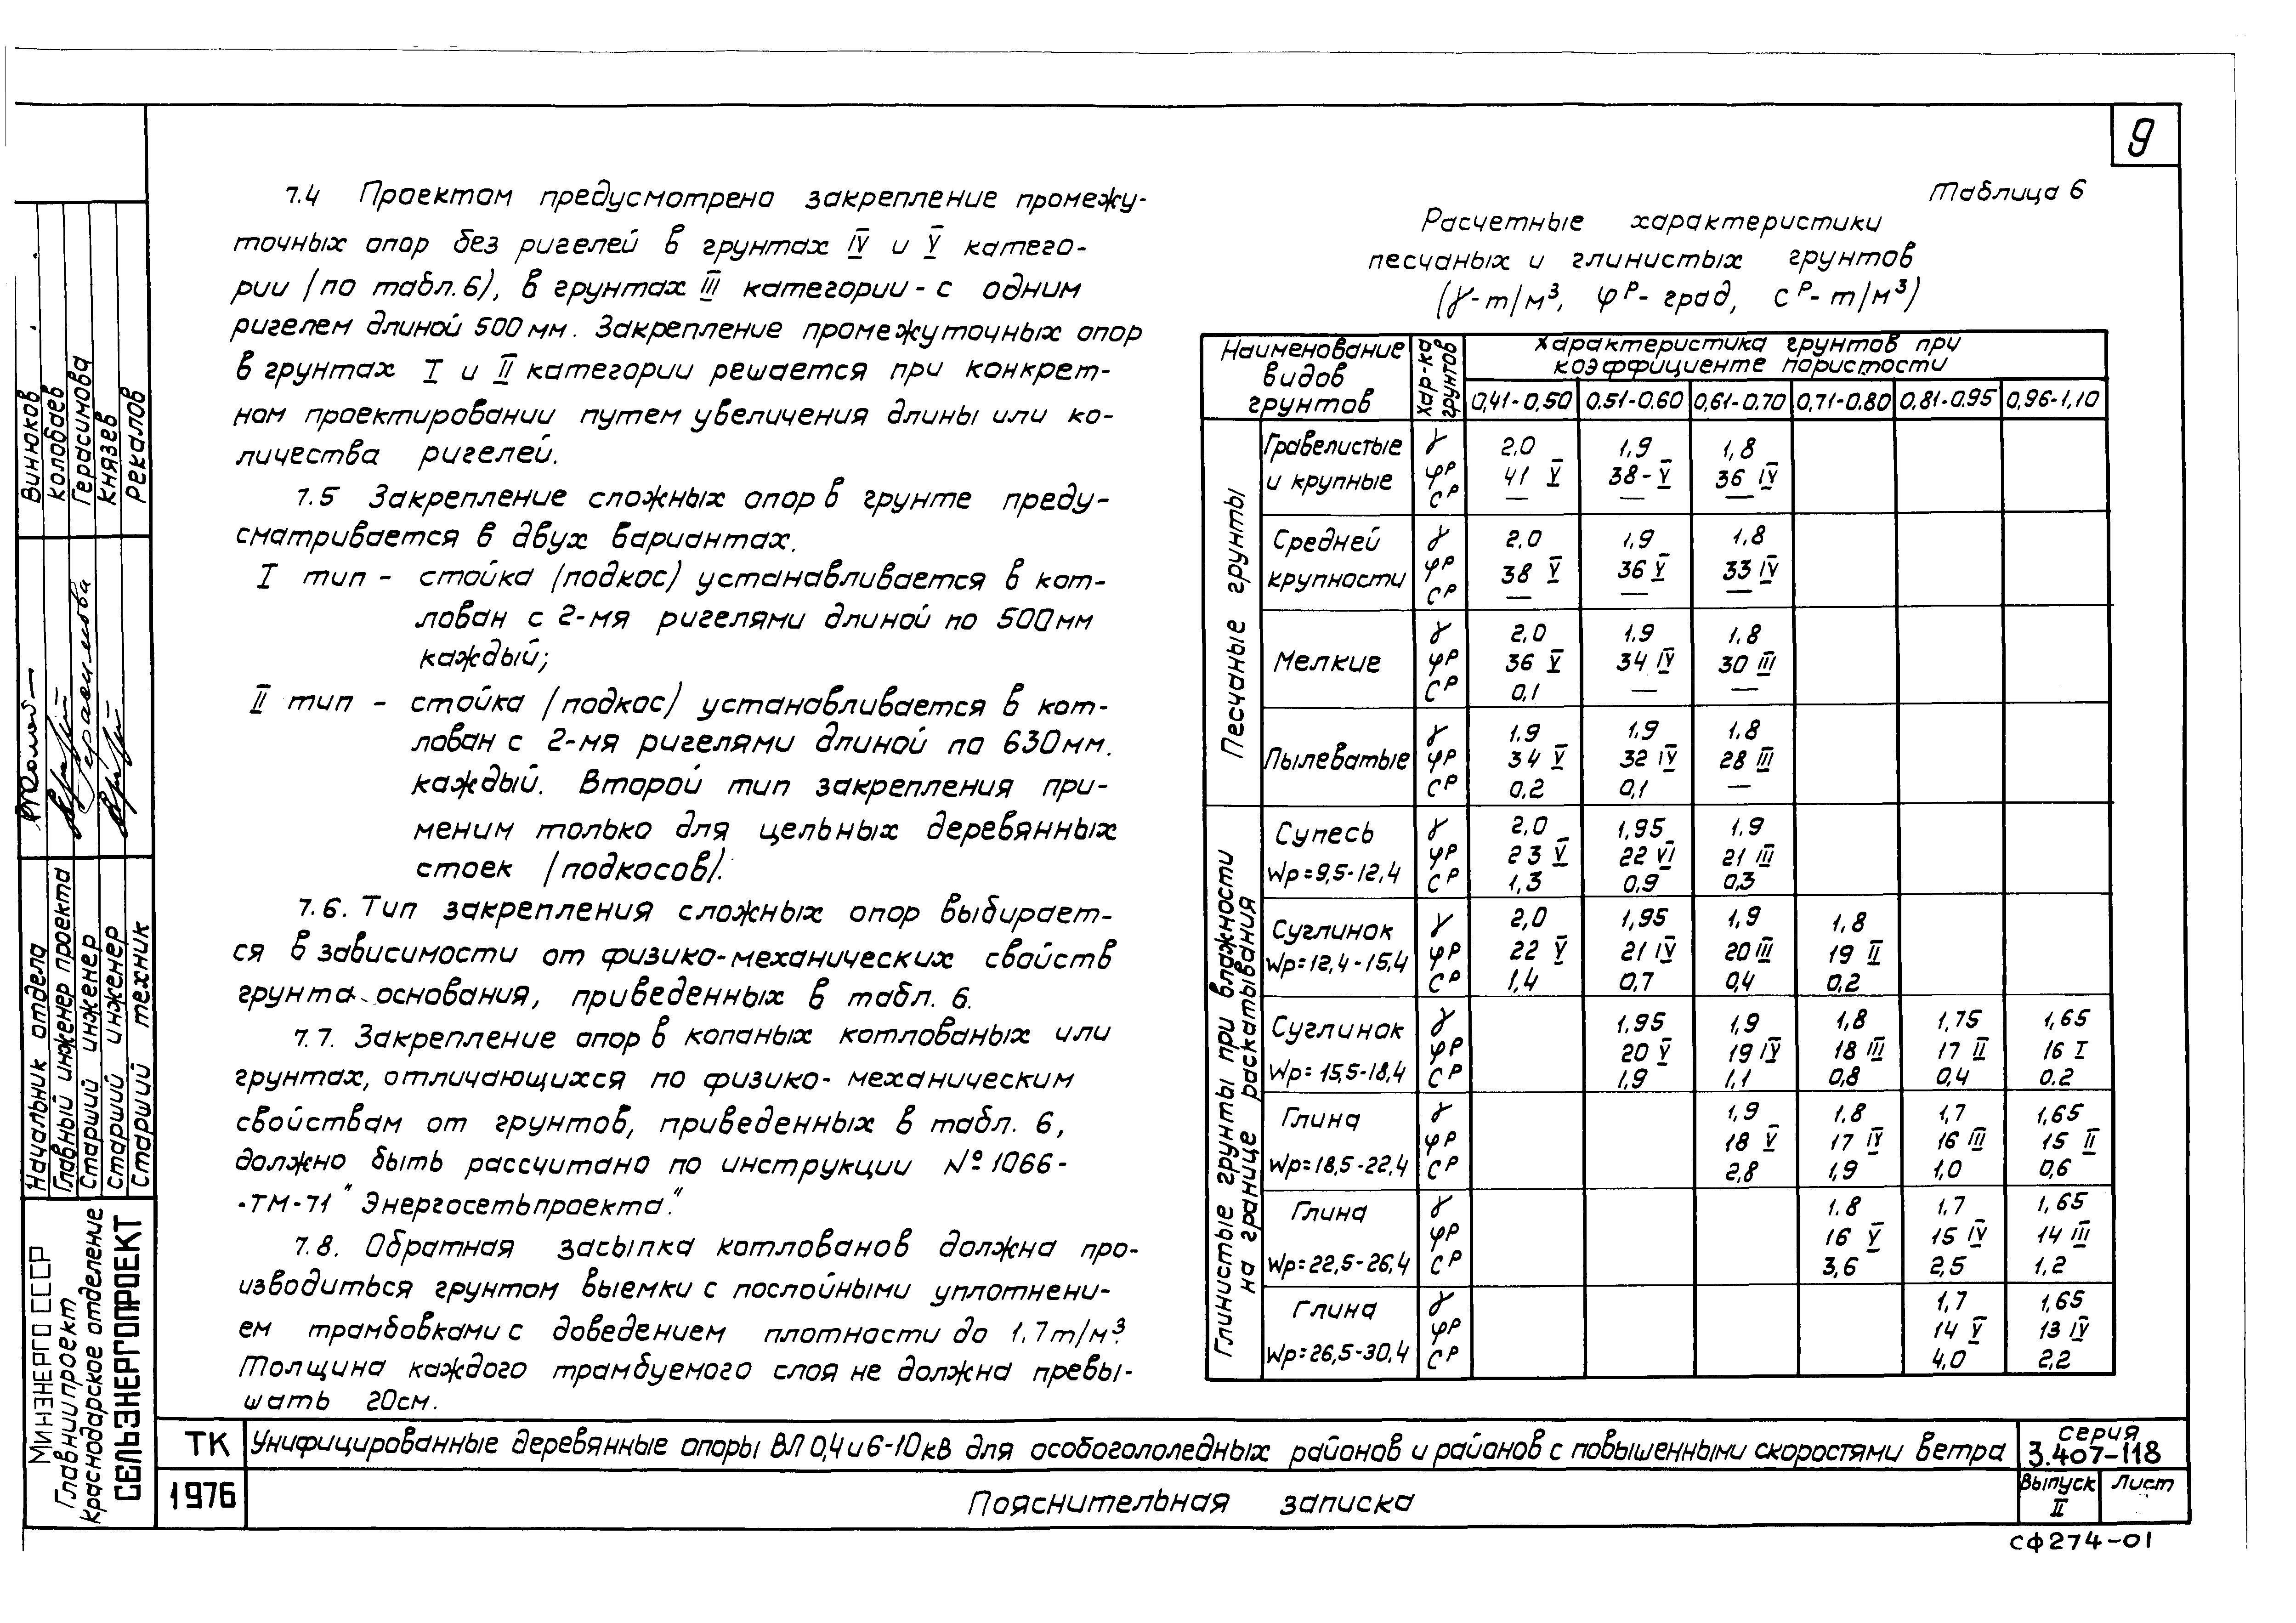 9
7.4 Проектом предусмотрено закрепление промежу-
точных опор без ригелей в грунтах IV и V катего-
рии (по табл.6), в грунтах III категории - с одним
ригелем длиной 500 мм. Закрепление промежуточных опор
в грунтах I и II категории решается при конкрет-
ном проектировании путем увеличения длины или ко-
личества ригелей.
7.5 Закрепление сложных опор в грунте преду-
сматривается в двух вариантах.
I тип - стойка (подкос) устанавливается в кот-
лован с 2-мя ригелями длиной по 500мм
каждый;
II тип - стойка (подкос) устанавливается в кот-
лован с 2-мя ригелями длиной по 630мм.
каждый. Второй тип закрепления при-
меним только для цельных деревянных
стоек (подкосов).
7.6. Тип закрепления сложных опор выбирает-
ся в зависимости от физико-механических свойств
грунта основания, приведенных в табл. 6.
7.7. Закрепление опор в копаных котлованых или
грунтах, отличающихся по физико-механическим
свойствам от грунтов, приведенных в табл. 6,
должно быть рассчитано по инструкции №1066-
-ТМ-71 "Энергосетьпроекта."
7.8. Обратная засыпка котлованов должна про-
изводиться грунтом выемки с послойными уплотнени-
ем трамбовками с доведением плотности до 1.7т/м³.
Толщина каждого трамбуемого слоя не должна превы-
шать 20см.
Таблица 6
Расчетные характеристики
песчаных и глинистых грунтов
(γ-т/м³, φᴾ-град, сᴾ-т/м³)
Наименование видов грунтов Хар-ка грунтов Характеристика грунтов при коэффициенте пористости
0,41-0,50 0,51-0,60 0,61-0.70 0,71-0.80 0,81-0.95 0,96-1,10
Песчаные грунты
Гравелистые γ 2.0 1.9 1,8
и крупные φᴾ 41 V 38-V 36 IV
сᴾ — — —
Средней γ 2.0 1.9 1.8
крупности φᴾ 38 V 36 V 33 IV
сᴾ — — —
γ 2,0 1.9 1.8
Мелкие φᴾ 36 V 34 IV 30 III
сᴾ 0,1 — —
γ 1.9 1.9 1.8
Пылеватые φᴾ 34 V 32 IV 28 III
сᴾ 0,2 0,1 —
Глинистые грунты при влажности на границе раскатывания
Супесь γ 2,0 1,95 1.9
φᴾ 23 V 22 VI 21 III
Wр=9,5-12,4 сᴾ 1,3 0,9 0,3
Суглинок γ 2,0 1,95 1,9 1.8
Wр=12,4-15,4 φᴾ 22 V 21 IV 20 III 19 II
сᴾ 1,4 0,7 0,4 0.2
Суглинок γ 1.95 1,9 1,8 1,75 1,65
φᴾ 20 V 19 IV 18 III 17 II 16 I
Wр=15,5-18,4 сᴾ 1,9 1,1 0,8 0,4 0.2
Глина γ 1,9 1.8 1,7 1,65
φᴾ 18 V 17 IV 16 III 15 II
Wр=18,5-22,4 сᴾ 2,8 1,9 1,0 0,6
Глина γ 1.8 1.7 1,65
φᴾ 16 V 15 IV 14 III
Wр=22,5-26,4 сᴾ 3,6 2,5 1.2
Глина γ 1.7 1,65
φᴾ 14 V 13 IV
Wр=26,5-30,4 сᴾ 4,0 2,2
Начальник отдела Винюков
Главный инженер проекта Колобаев
Старший инженер Герасимова Герасимова
Старший инженер Князев
Старший техник Рекалов
МИНЭНЕРГО СССР
Главниипроект
Краснодарское отделение
СЕЛЬЭНЕРГОПРОЕКТ
ТК Унифицированные деревянные опоры ВЛ 0,4 и 6-10кВ для особогололедных районов и районов с повышенными скоростями ветра серия 3.407-118
1976 Пояснительная записка Выпуск II Лист
СФ274-01